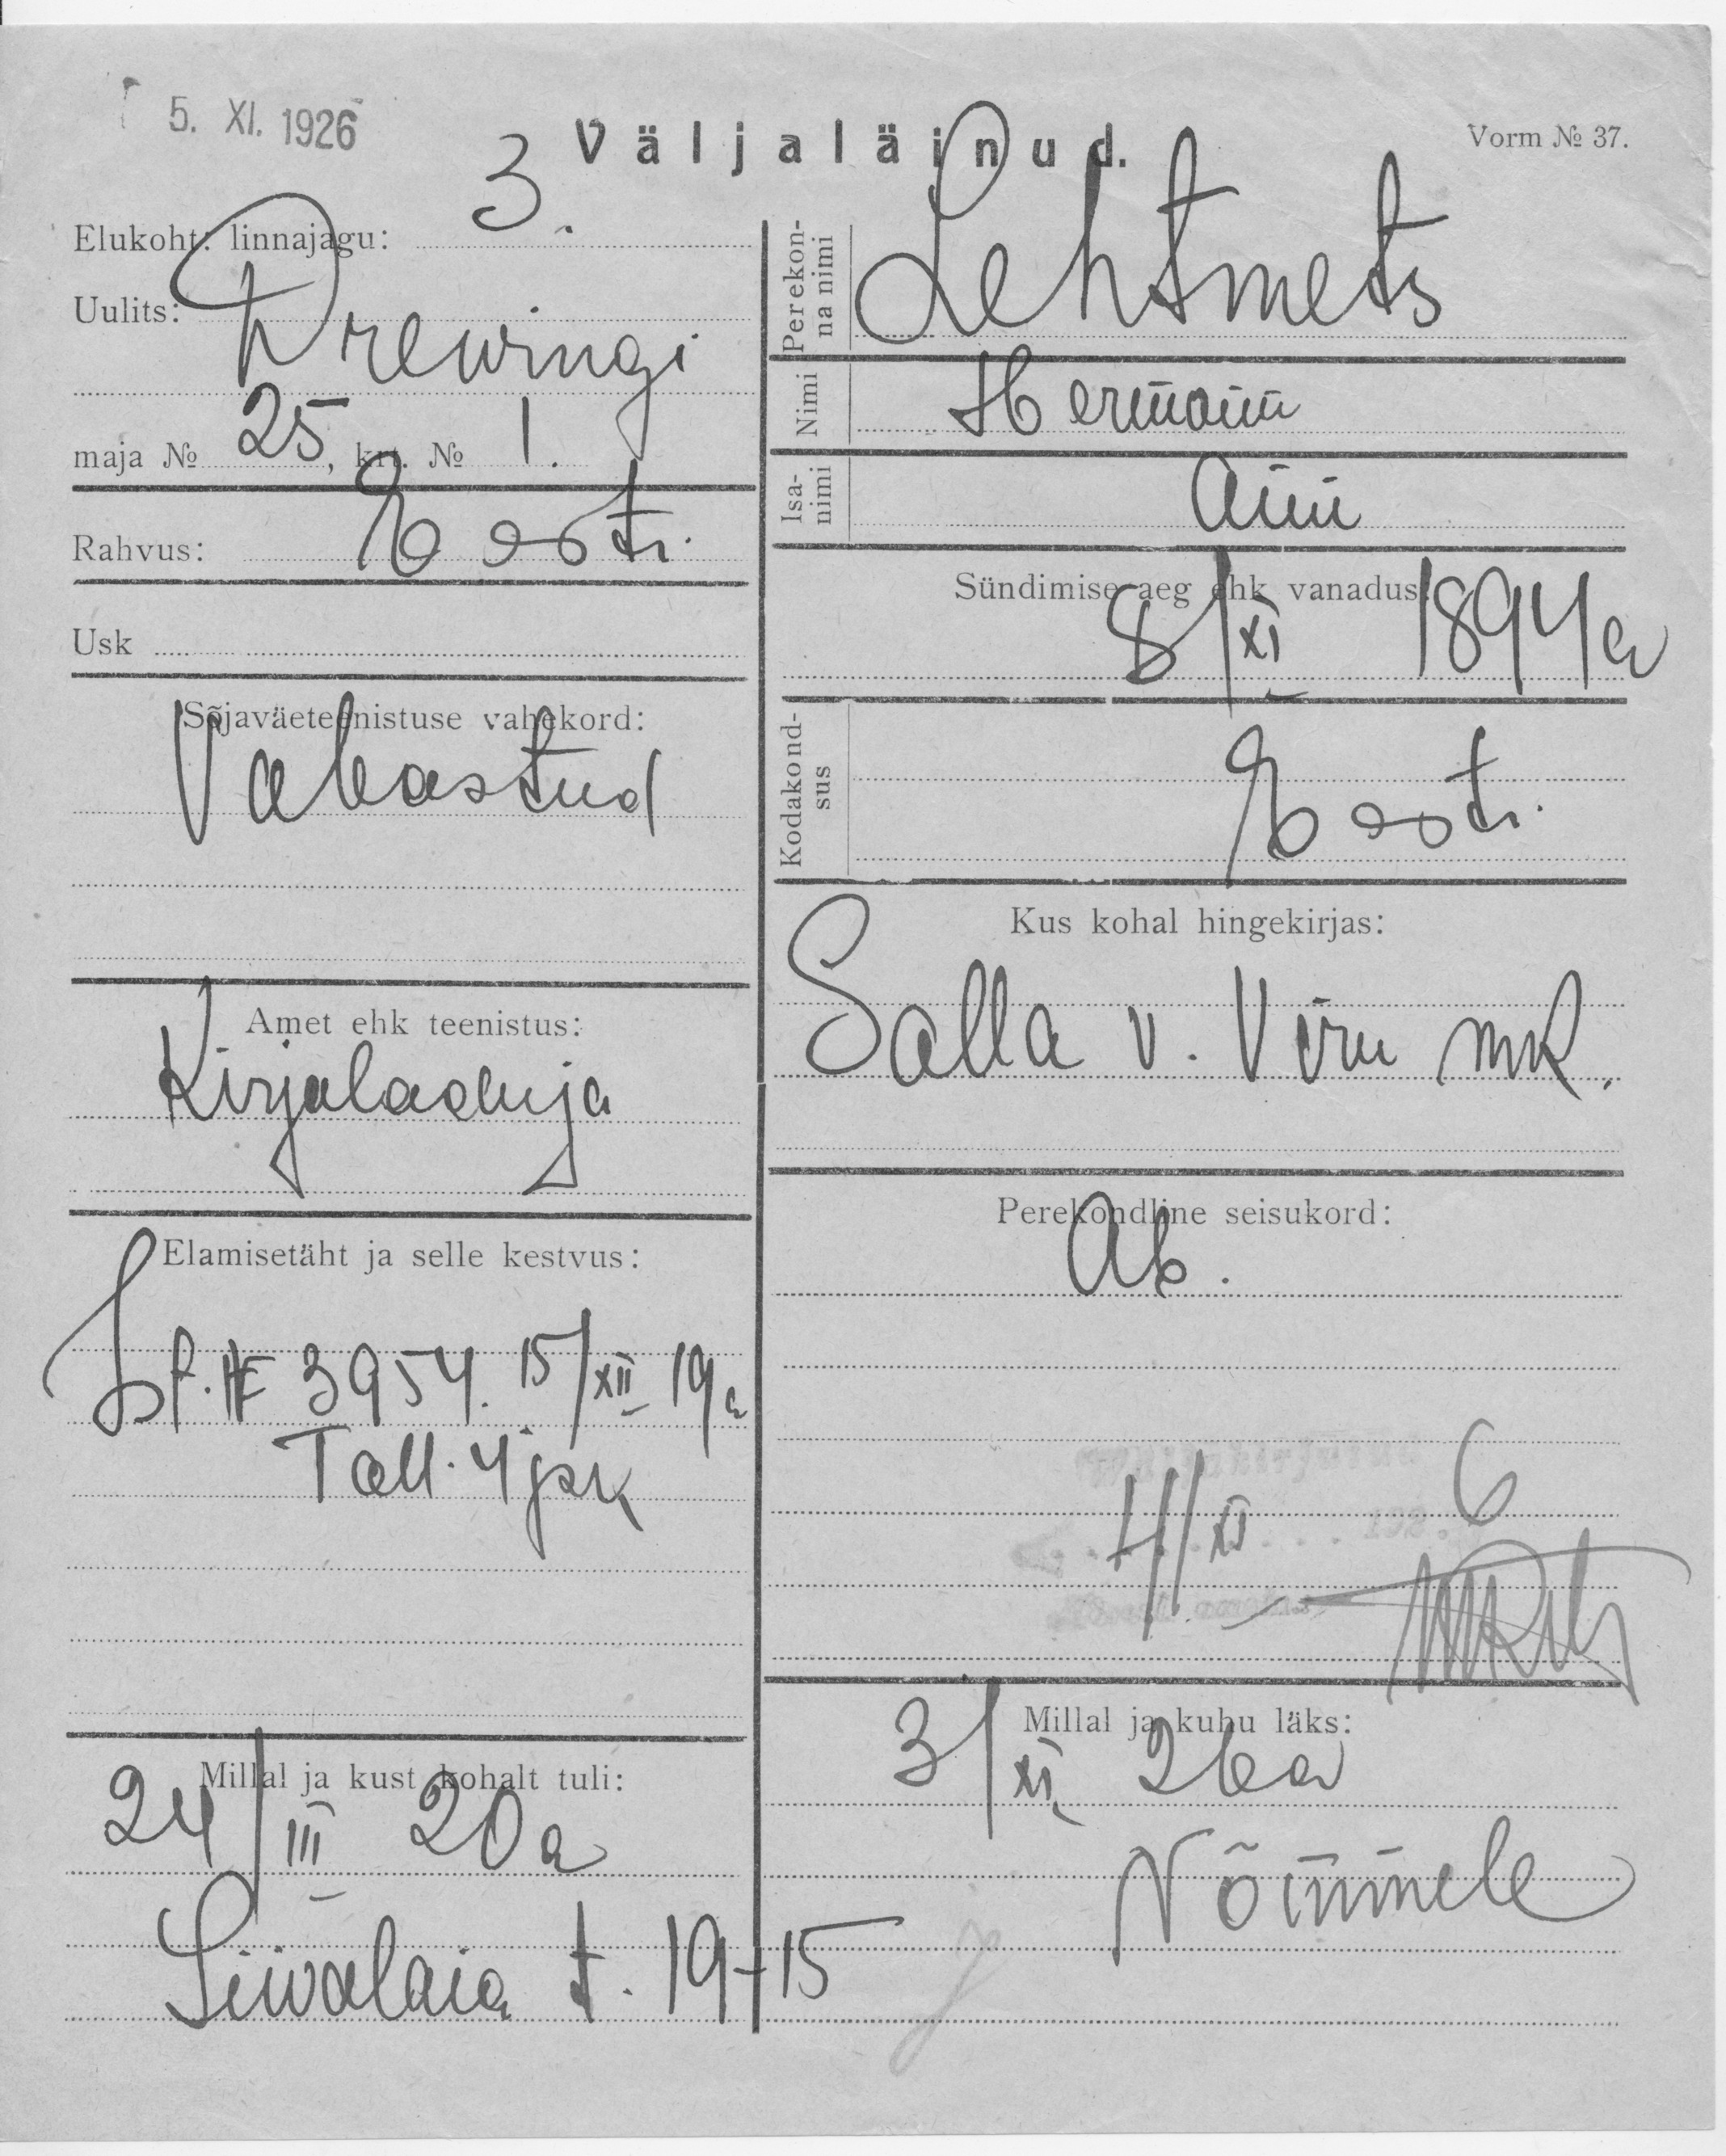 5. XI. 1926
Väljaläinud.
Vorm № 37.
Elukoht: linnajagu: 3.
Uulits: Drewingi
maja № 25, krt. № 1.
Rahvus: Eesti.
Usk
Sõjaväeteenistuse vahekord:
Vabastud
Amet ehk teenistus:
Kirjaladuja
Elamisetäht ja selle kestvus:
3954. 15/XII 19a
Tall. 4 jsk
Millal ja kust kohalt tuli:
24/III 20a
Liiwalaia t. 19-15
Perekonna nimi Lehtmets
Nimi Hermann
Isanimi Ann
Sündimise aeg ehk vanadus:
8/XI 1894a
Kodakondsus Eesti.
Kus kohal hingekirjas:
Salla v. Viru mk.
Perekondline seisukord:
Ab.
4/XI 6
Millal ja kuhu läks:
3/XI 26a
Nõmmele